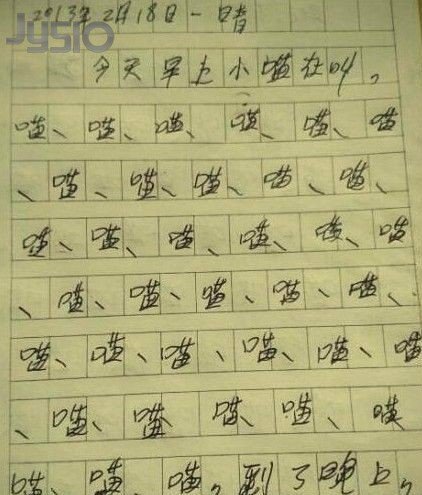 Jysio
2013年2月18日一晴
今天早上小喵在叫，
喵、喵、喵、喵、喵、喵
、喵、喵、喵、喵、喵、
喵、喵、喵、喵、喵、喵
、喵、喵、喵、喵、喵、
喵、喵、喵、喵、喵、喵
、喵、喵、喵、喵、喵
喵、喵、喵，到了晚上，